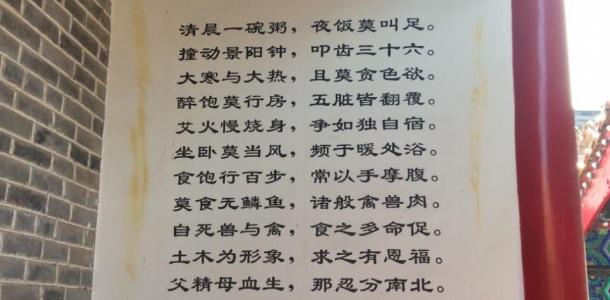 清晨一碗粥，夜饭莫叫足。
撞动景阳钟，叩齿三十六。
大寒与大热，且莫贪色欲。
醉饱莫行房，五脏皆翻覆。
艾火慢烧身，争如独自宿。
坐卧莫当风，频于暖处浴。
食饱行百步，常以手摩腹。
莫食无鳞鱼，诸般禽兽肉。
自死兽与禽，食之多命促。
土木为形象，求之有恩福。
父精母血生，那忍分南北。